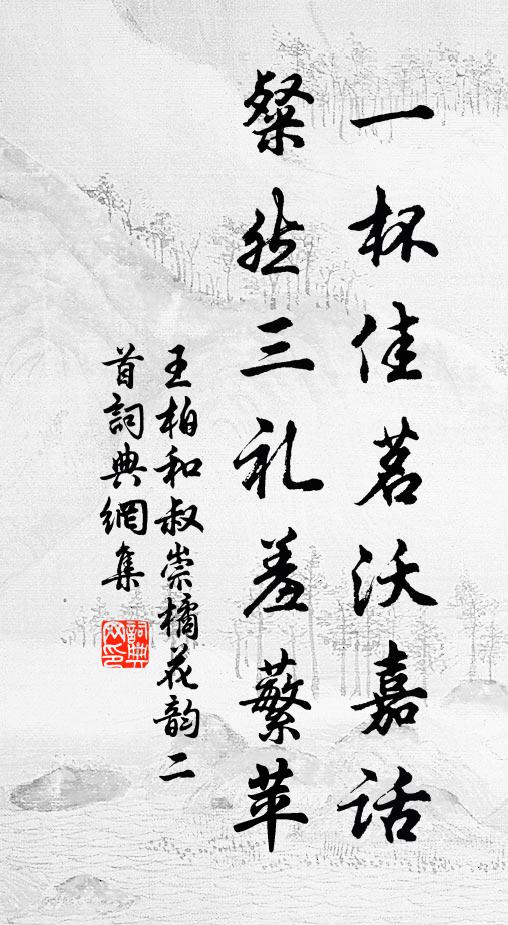 一杯佳茗沃嘉話
粲然三礼羞蘩苹
王柏和叔崇橘花韵二
首詞典網集
詞典
网印